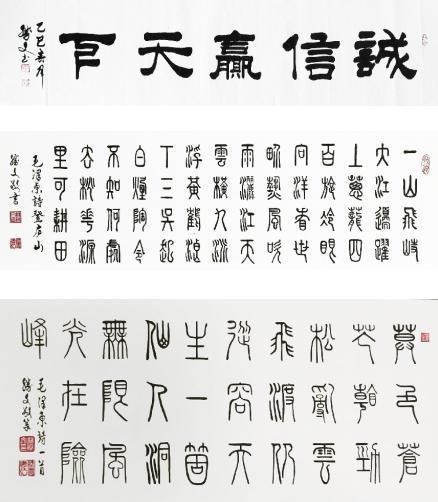 誠信贏天下
乙巳春月
一山飛峙
大江邊躍
上蔥蘢四
百旋冷眼
向洋看世
界熱風吹
雨灑江天
雲橫九派
浮黃鶴浪
下三吳起
白煙陶令
不知何處
去桃花源
里可耕田
毛澤東詩登庐山
敬書
暮色蒼
茫看勁
松亂雲
飛渡仍
從容天
生一箇
仙人洞
無限風
光在險
峰
毛澤東詩一首